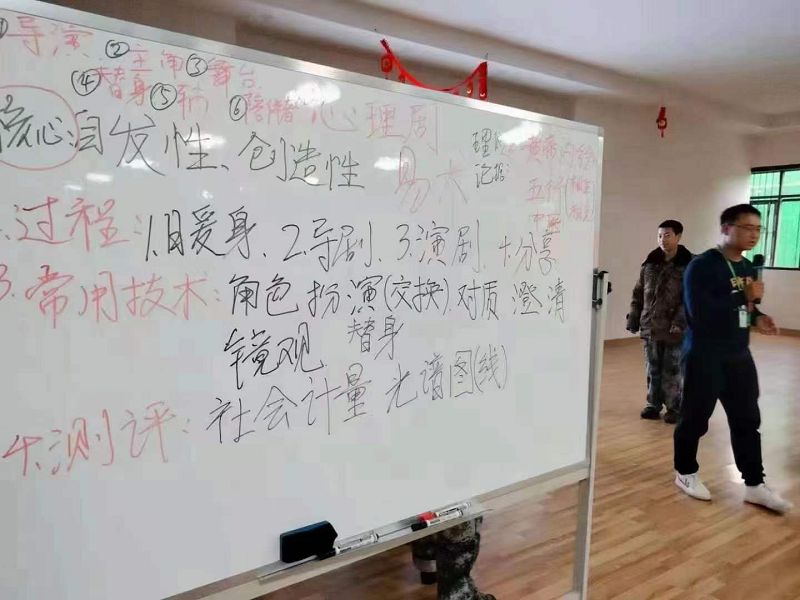 ①导演 ②主角 ③舞台
④替身 ⑤辅 ⑥陪
心理剧
核心:自发性、创造性
易术
理
记
五行
2.过程:1.暖身、2.导剧、3.演剧、4.分享
3.常用技术:角色扮演(交换)、对质 澄清
镜观 替身
4.测评:社会计量 光谱图(线)